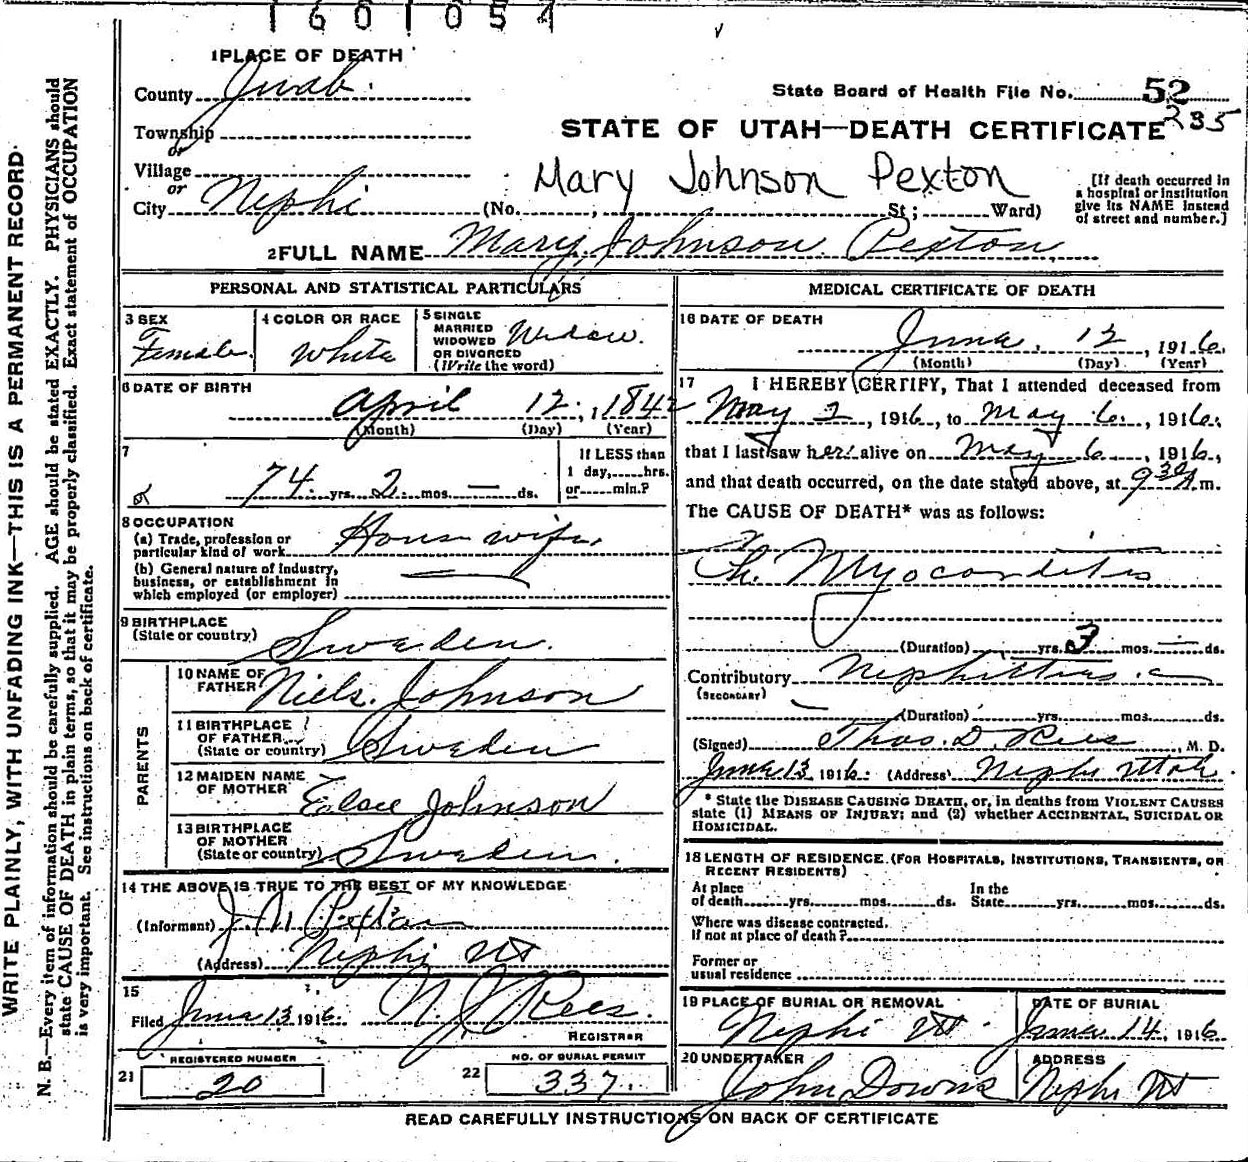 1601054
1 PLACE OF DEATH
County Juab.
State Board of Health File No. 52
235
Township
or
STATE OF UTAH—DEATH CERTIFICATE
Village
or
Mary Johnson Pexton
City Nephi (No. , St; Ward)
[If death occurred in
a hospital or institution
give its NAME instead
of street and number.]
2 FULL NAME Mary Johnson Pexton
PERSONAL AND STATISTICAL PARTICULARS
3 SEX
Female
4 COLOR OR RACE
White
5 SINGLE
MARRIED
WIDOWED
OR DIVORCED
(Write the word)
Widow.
6 DATE OF BIRTH
April 12, 1842
(Month) (Day) (Year)
7
74 yrs. 2 mos. — ds.
If LESS than
1 day, hrs.
or min.?
8 OCCUPATION
(a) Trade, profession or
particular kind of work House wife.
(b) General nature of industry,
business, or establishment in
which employed (or employer)
9 BIRTHPLACE
(State or country) Sweden.
PARENTS
10 NAME OF
FATHER Niels Johnson
11 BIRTHPLACE
OF FATHER
(State or country) Sweden
12 MAIDEN NAME
OF MOTHER Johnson
13 BIRTHPLACE
OF MOTHER
(State or country) Sweden.
14 THE ABOVE IS TRUE TO THE BEST OF MY KNOWLEDGE
(Informant) Pexton
(Address) Nephi Ut
15
Filed June 13 1916. Rees.
REGISTRAR
REGISTERED NUMBER
21 20
NO. OF BURIAL PERMIT
22 337.
MEDICAL CERTIFICATE OF DEATH
16 DATE OF DEATH
June 12, 1916.
(Month) (Day) (Year)
17 I HEREBY CERTIFY, That I attended deceased from
May 2, 1916, to May 6, 1916,
that I last saw her alive on May 6, 1916,
and that death occurred, on the date stated above, at 9 30 A m.
The CAUSE OF DEATH* was as follows:
Ch. Myocarditis
(Duration) yrs. 3 mos. — ds.
Contributory Nephritis. c
(SECONDARY)
(Duration) yrs. mos. ds.
(Signed) Thos. D. Rees, M. D.
June 13, 1916. (Address) Nephi Utah.
* State the DISEASE CAUSING DEATH, or, in deaths from VIOLENT CAUSES
state (1) MEANS OF INJURY; and (2) whether ACCIDENTAL, SUICIDAL OR
HOMICIDAL.
18 LENGTH OF RESIDENCE (FOR HOSPITALS, INSTITUTIONS, TRANSIENTS, OR
RECENT RESIDENTS)
At place
of death yrs. mos. ds.
In the
State yrs. mos. ds.
Where was disease contracted.
If not at place of death?
Former or
usual residence
19 PLACE OF BURIAL OR REMOVAL
Nephi Ut.
DATE OF BURIAL
June 14, 1916
20 UNDERTAKER
John Downs
ADDRESS
Nephi Ut
READ CAREFULLY INSTRUCTIONS ON BACK OF CERTIFICATE
WRITE PLAINLY, WITH UNFADING INK—THIS IS A PERMANENT RECORD.
N. B.—Every item of information should be carefully supplied. AGE should be stated EXACTLY. PHYSICIANS should
state CAUSE OF DEATH in plain terms, so that it may be properly classified. Exact statement of OCCUPATION
is very important. See instructions on back of certificate.